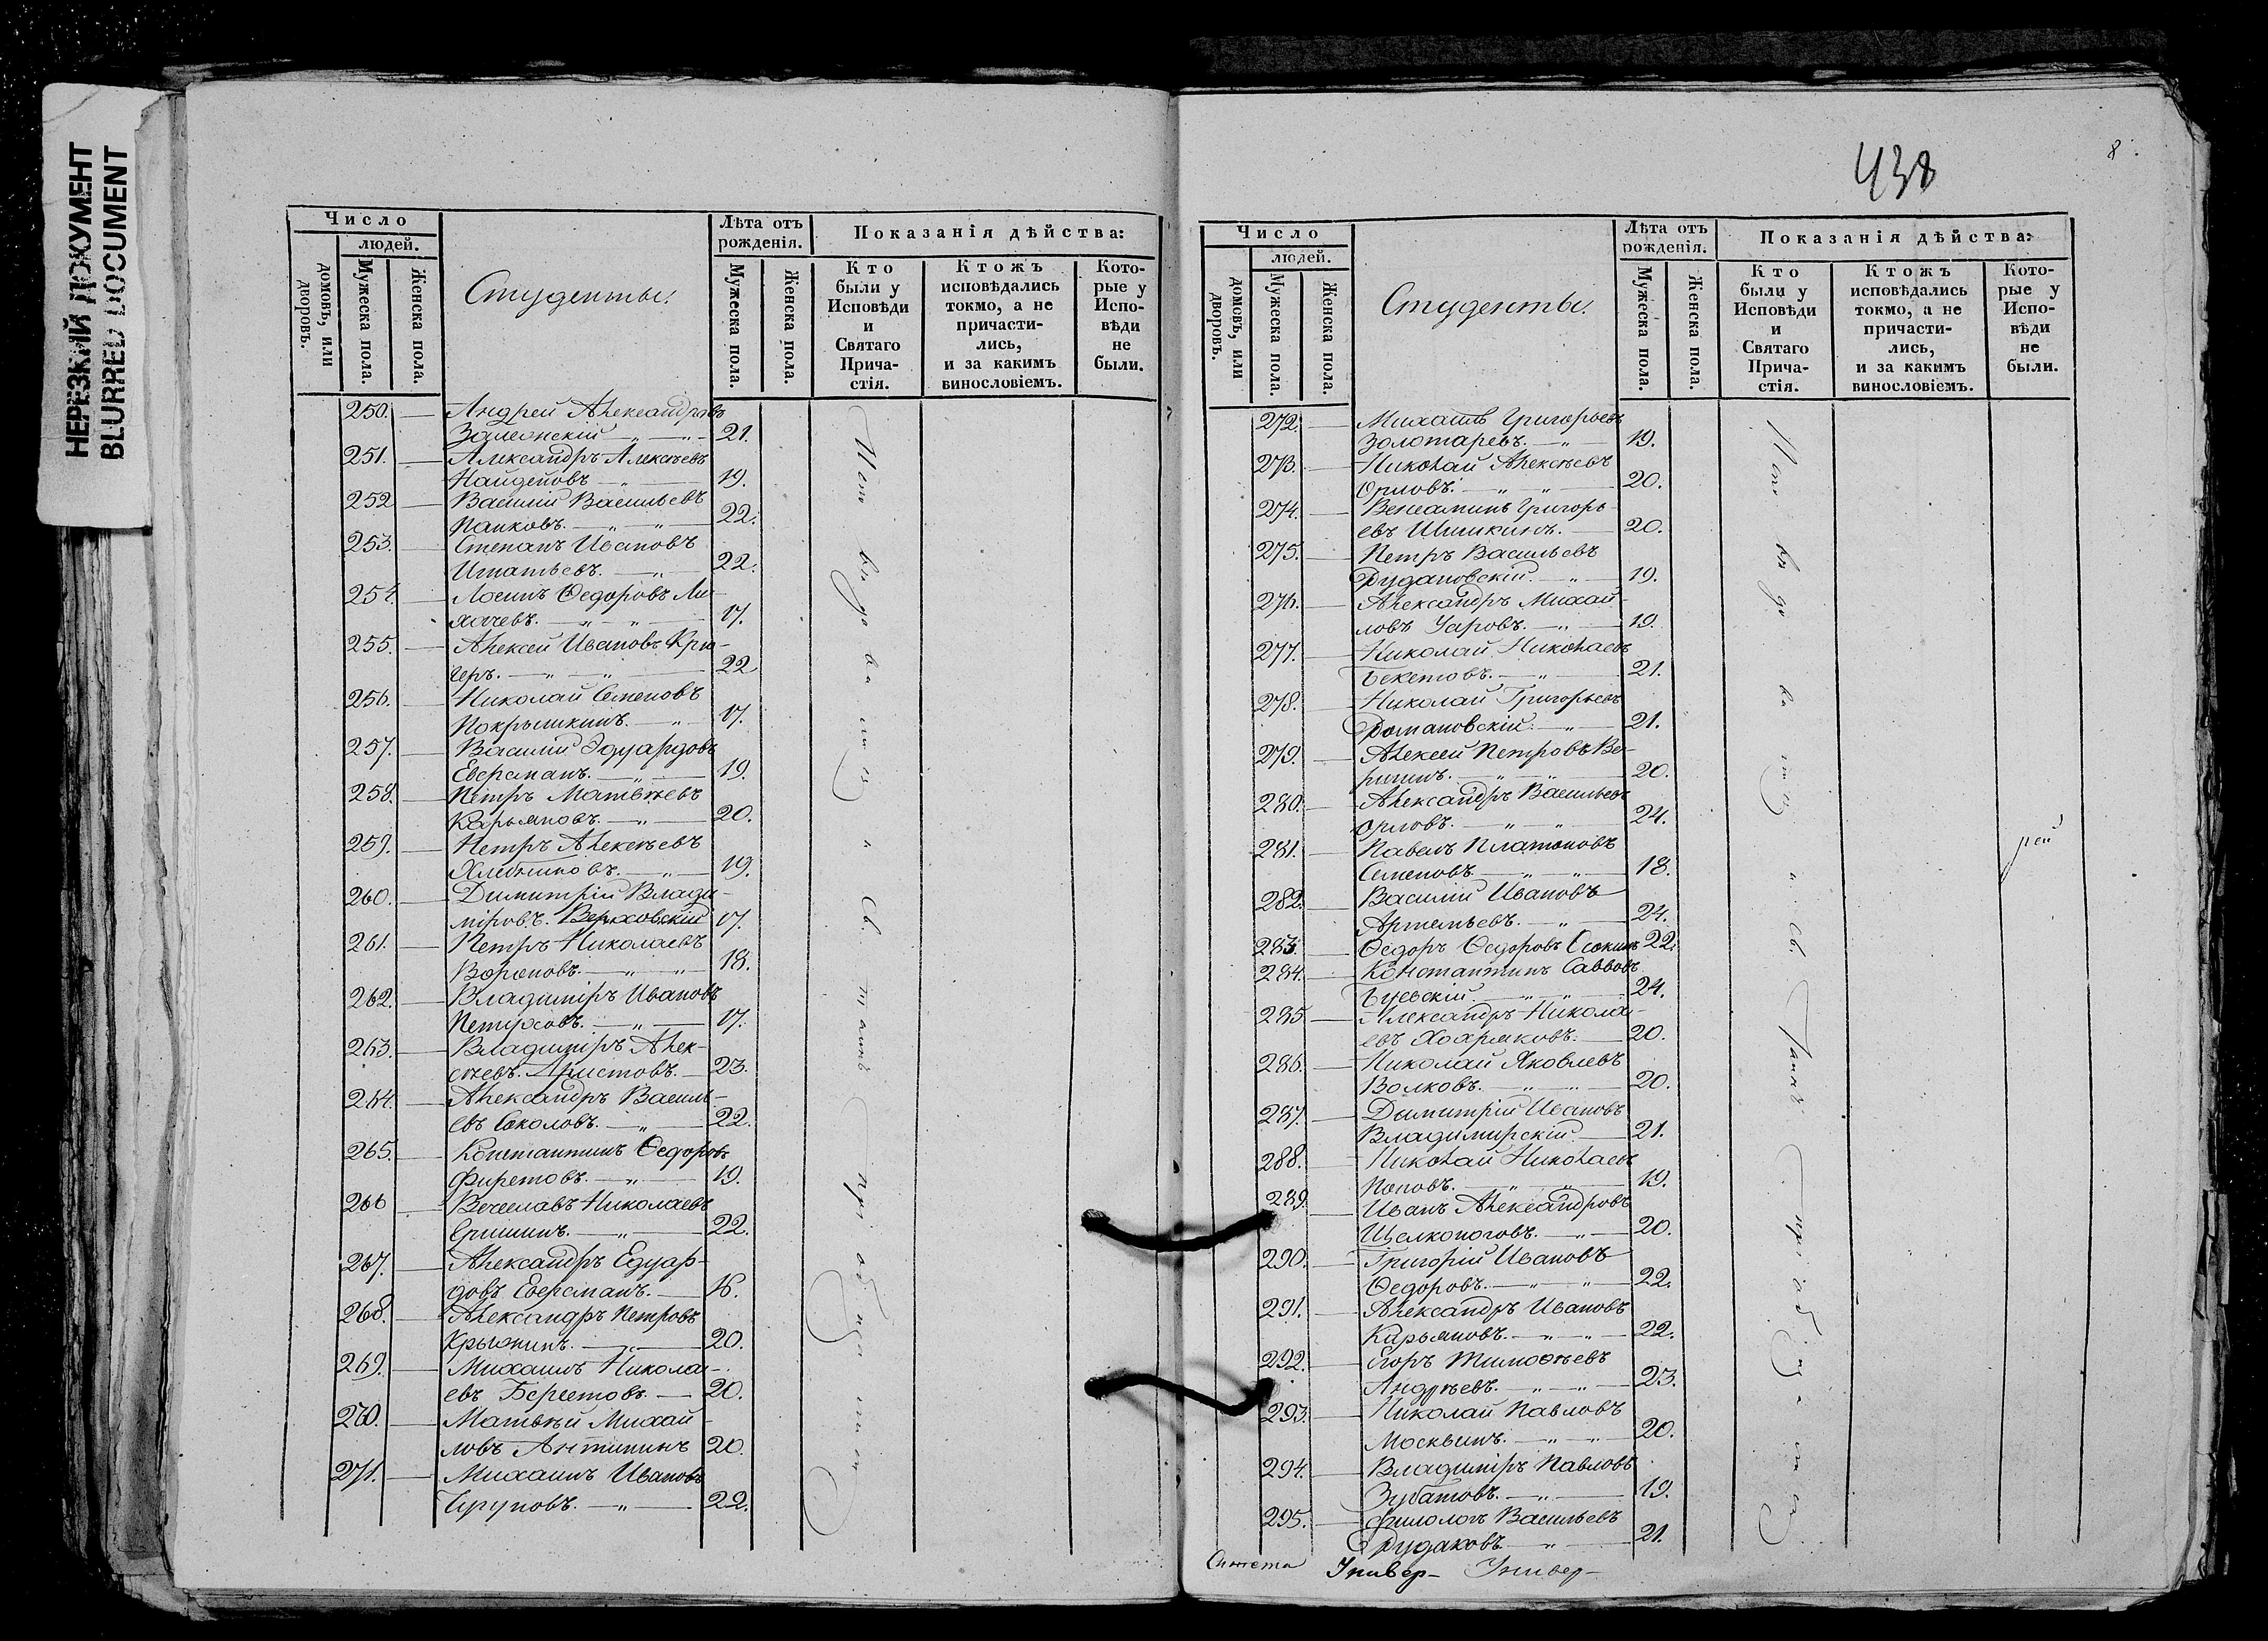 НЕРЕЗКИЙ ДОКУМЕНТ
BLURRED DOCUMENT
Число
людей.
домовъ, или дворовъ.
Мужеска пола.
Женска пола.
Студенты.
Лѣта отъ
рожденія.
Мужеска пола.
Женска пола.
Показанія дѣйства:
Кто
были у
Исповѣди
и
Святаго
Прича-
стія.
Ктожъ
исповѣдались
токмо, а не
причасти-
лись,
и за какимъ
винословіемъ.
Кото-
рые у
Испо-
вѣди
не
были.
250. Андрей Александровъ
Залеонскій 21.
251. Александръ Алексѣевъ
Найденовъ 19.
252 Василій Васильевъ
Панковъ. 22.
253. Степанъ Ивановъ
Игнатьевъ. 22.
254. Ѳедоровъ Ли-
хачевъ. 17.
255. Алексей Ивановъ Крю-
геръ. 22
256. Николай Семеновъ
Покрышкинъ. 17.
257. Василій Эдуардовъ
Еверсманъ. 19.
258. Петръ Матвѣевъ
Карьяновъ. 20.
259. Петръ Алексѣевъ
Хлебниковъ. 19.
260. Димитрій Влади-
міровъ. Верховскій 17.
261. Петръ Николаевъ
Вороновъ. 18.
262. Владиміръ Ивановъ
Петуховъ. 17.
263. Владиміръ Алек-
сѣевъ. Аристовъ. 23.
264. Александръ Василь-
евъ Соколовъ. 22.
265. Константинъ Ѳедоровъ
Фиретовъ. 19.
266 Вечеславъ Николаевъ
Еришинъ. 22.
267. Александръ Едуар-
довъ Еверсманъ. 16.
268. Александръ Петровъ
Крыжинъ. 20.
269. Михаилъ Никола-
евъ Берестовъ. 20.
270. Матвѣй Михай-
ловъ Антипинъ 20.
271. Михаилъ Ивановъ
22.
438
8.
Число
людей.
домовъ, или дворовъ.
Мужеска пола.
Женска пола.
Студенты.
Лѣта отъ
рожденія.
Мужеска пола.
Женска пола.
Показанія дѣйства:
Кто
были у
Исповѣди
и
Святаго
Прича-
стія.
Ктожъ
исповѣдались
токмо, а не
причасти-
лись,
и за какимъ
винословіемъ.
Кото-
рые у
Испо-
вѣди
не
были.
272. Михаилъ Григорьевъ
Золотаревъ. 19.
273. Николай Алексѣевъ
Орловъ. 20.
274. Веніаминъ Григорь-
евъ Шишкинъ. 20.
275. Петръ Васильевъ
Рудановскій. 19.
276. Александръ Михай-
ловъ Уаровъ. 19.
277. Николай Николаевъ
Бекетовъ. 21.
278. Николай Григорьевъ
Романовскій. 21.
279. Алексей Петровъ Ве-
ригинъ. 20.
280. Александръ Васильевъ
Орловъ. 24.
281. Павелъ Платоновъ
Семеновъ 18.
282. Василій Ивановъ
Артемьевъ. 24.
283. Ѳедоръ Ѳедоровъ Осокинъ 22.
284. Константинъ Саввовъ
Буевскій. 24.
285. Александръ Никола-
евъ Хохряковъ. 20.
286. Николай Яковлевъ
Волковъ. 20.
287. Димитрій Ивановъ
Владимирскій. 21.
288. Николай Николаевъ
Поповъ. 19.
289. Иванъ Александровъ
Щелконоговъ. 20.
290. Григорій Ивановъ
Ѳедоровъ. 22.
291. Александръ Ивановъ
Карьяновъ. 22.
292. Егоръ Тимоѳѣевъ
Андрѣевъ. 23.
293. Николай Павловъ
Москвинъ. 20.
294. Владиміръ Павловъ
Зубатовъ. 19.
295. Филологъ Васильевъ
Рудаковъ 21.
рей
Универ- Универ-